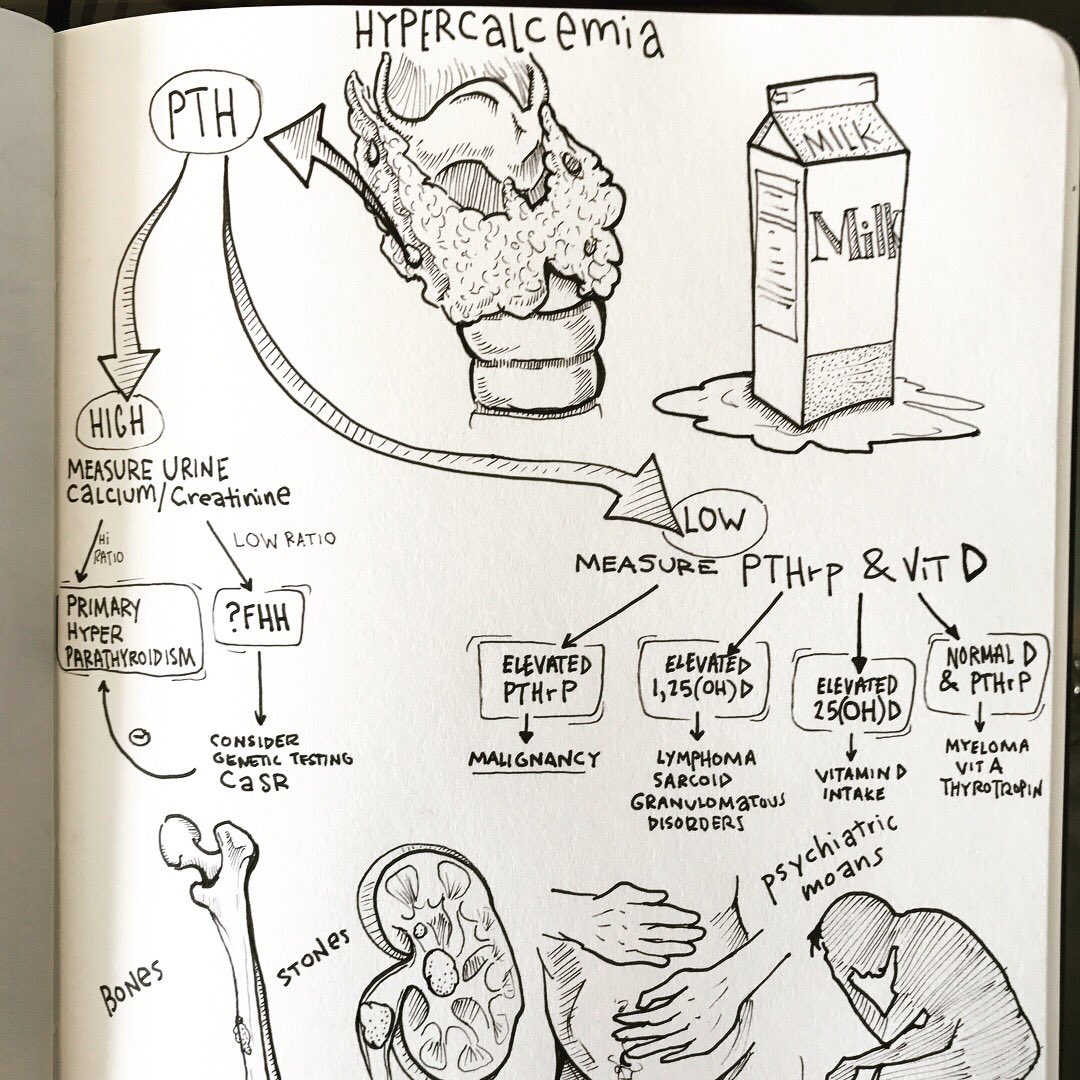 HYPERCALCEMIA
PTH
MILK
Milk
HIGH
MEASURE URINE
CALCIUM/Creatinine
Hi
RATIO
LOW RATIO
PRIMARY
HYPER
PARATHYROIDISM
?FHH
CONSIDER
GENETIC TESTING
CaSR
LOW
MEASURE PTHrp & ViT D
ELEVATED
PTHrP
MALIGNANCY
ELEVATED
1,25(OH)D
LYMPHOMA
SARCOID
GRANULOMATOUS
DISORDERS
ELEVATED
25(OH)D
VITAMIN D
INTAKE
NORMAL D
& PTHrP
MYELOMA
VIT A
THYROTROPIN
BONES
STONES
psychiatric
moans